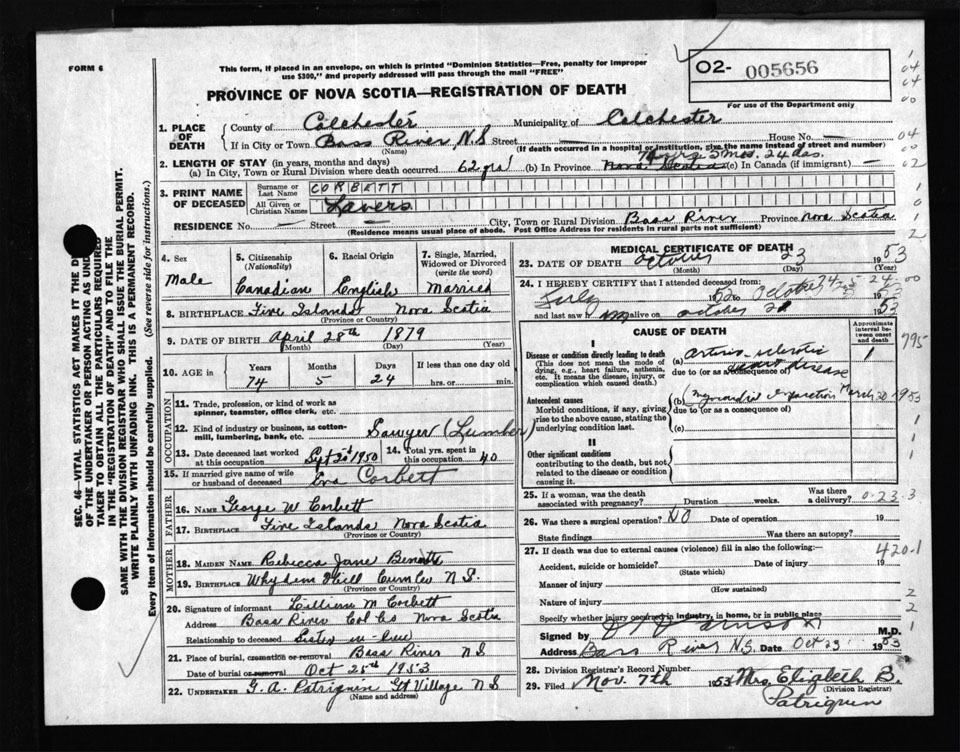 FORM 6
This form, if placed in an envelope, on which is printed "Dominion Statistics—Free, penalty for improper
use $300," and properly addressed will pass through the mail "FREE"
O2- 005656
For use of the Department only
PROVINCE OF NOVA SCOTIA—REGISTRATION OF DEATH
1. PLACE OF DEATH
County of Colchester Municipality of Colchester
If in City or Town Bass River N.S Street — House No. —
(Name) (If death occurred in a hospital or institution, give the name instead of street and number)
74 yrs 5 mos. 24 das.
2. LENGTH OF STAY (in years, months and days)
(a) In City, Town or Rural Division where death occurred 62 yrs (b) In Province Nova Scotia (c) In Canada (if immigrant) —
3. PRINT NAME OF DECEASED
Surname or Last Name CORBETT
All Given or Christian Names Lavers
RESIDENCE No. — Street City, Town or Rural Division Bass River Province Nova Scotia
(Residence means usual place of abode. Post Office Address for residents in rural parts not sufficient)
4. Sex
Male
5. Citizenship
(Nationality)
Canadian
6. Racial Origin
English
7. Single, Married,
Widowed or Divorced
(write the word)
Married
8. BIRTHPLACE Five Islands Nova Scotia
(Province or Country)
9. DATE OF BIRTH April 28th 1879
(Month) (Day) (YEAR)
10. AGE in
Years Months Days If less than one day old
74 5 24 hrs. or min.
OCCUPATION
11. Trade, profession, or kind of work as
spinner, teamster, office clerk, etc.
12. Kind of industry or business, as cotton-
mill, lumbering, bank, etc. Sawyer (Lumber)
13. Date deceased last worked
at this occupation Sept 20th 1950
14. Total yrs. spent in
this occupation 40
15. If married give name of wife
or husband of deceased Eva Corbett
FATHER
16. NAME George W Corbett
17. BIRTHPLACE Five Islands Nova Scotia
(Province or Country)
MOTHER
18. MAIDEN NAME Rebecca Jane
19. BIRTHPLACE Hill N.S.
(Province or Country)
20. Signature of informant Lillian M Corbett
Address Bass River Col Co Nova Scotia
Relationship to deceased Sister in law
21. Place of burial, cremation or removal Bass River N S
Date of burial or removal Oct 25th 1953
22. UNDERTAKER G. A. Patriquin Gt Village N S
(Name and address)
MEDICAL CERTIFICATE OF DEATH
23. DATE OF DEATH October 23 1953
(Month) (Day) (Year)
24. I HEREBY CERTIFY that I attended deceased from:
July 1952 to October
and last saw him alive on October 1953
CAUSE OF DEATH
Approximate interval between onset and death
I
Disease or condition directly leading to death
(This does not mean the mode of
dying, e.g., heart failure, asthenia,
etc. It means the disease, injury, or
complication which caused death.)
(a) arterio-sclerotic
due to (or as a consequence of)
heart disease
Antecedent causes
Morbid conditions, if any, giving
rise to the above cause, stating the
underlying condition last.
(b) myocardial infarction March 1953
due to (or as a consequence of)
(c)
II
Other significant conditions
contributing to the death, but not
related to the disease or condition
causing it.
25. If a woman, was the death
associated with pregnancy? Duration weeks. Was there a delivery?
26. Was there a surgical operation? NO Date of operation 19
State findings Was there an autopsy?
27. If death was due to external causes (violence) fill in also the following:—
Accident, suicide or homicide? Date of injury 19
(State which)
Manner of injury
(How sustained)
Nature of injury
Specify whether injury occurred in industry, in home, or in public place
Signed by M.D.
Address Bass River N.S. Date Oct 23 1953
28. Division Registrar's Record Number
29. Filed Nov. 7th 1953 Mrs. Elizabeth B. Patriquin
(Division Registrar)
795
0.23.3
420.1
SEC. 46—VITAL STATISTICS ACT MAKES IT THE
OF THE UNDERTAKER OR PERSON ACTING AS
TAKER TO OBTAIN ALL THE PARTICULARS REQUIRED
IN THE "REGISTRATION OF DEATH" AND TO FILE THE
SAME WITH THE DIVISION REGISTRAR WHO SHALL ISSUE THE BURIAL PERMIT.
WRITE PLAINLY WITH UNFADING INK. THIS IS A PERMANENT RECORD.
Every item of information should be carefully supplied. (See reverse side for instructions.)